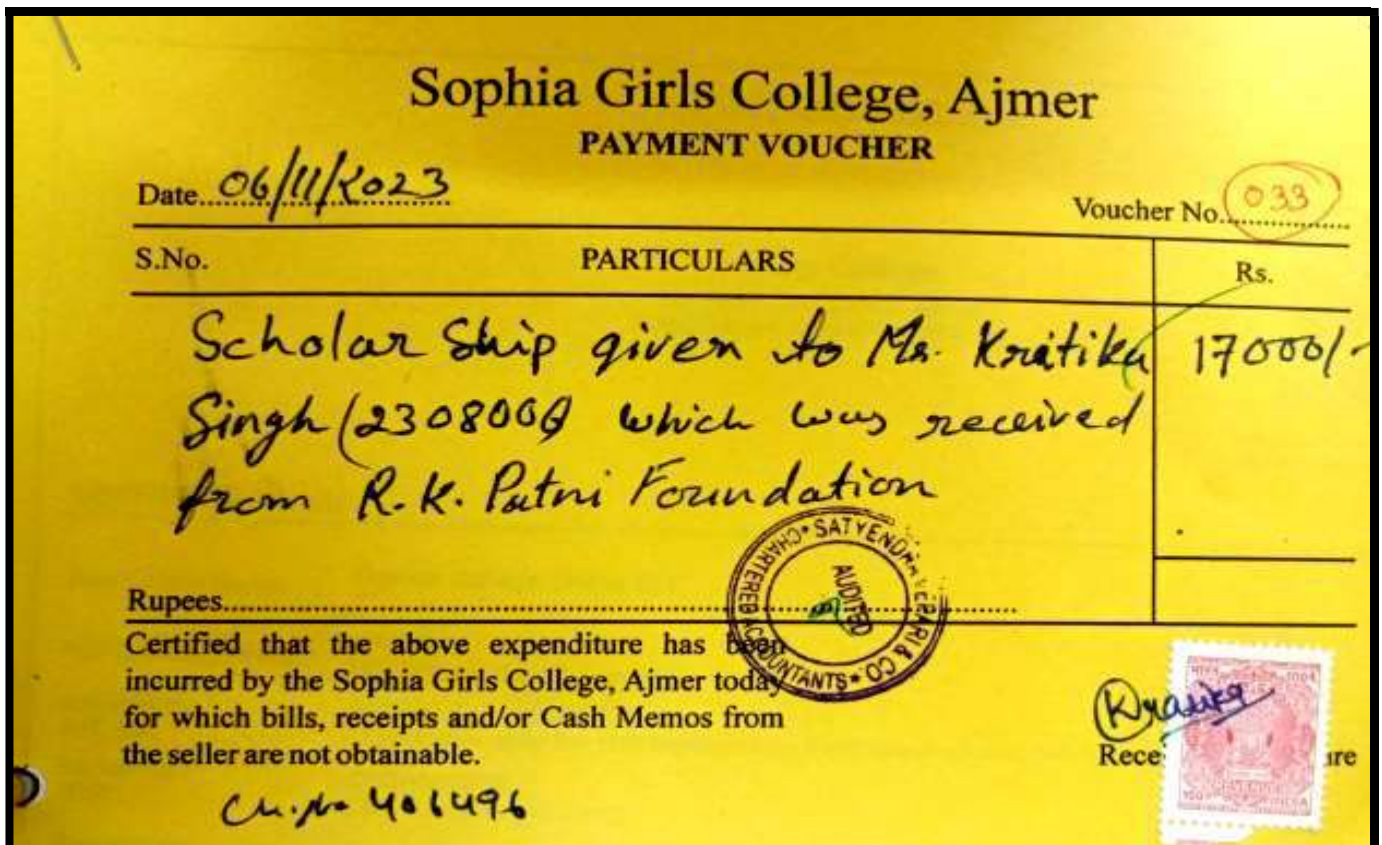 Sophia Girls College, Ajmer
PAYMENT VOUCHER
Date 06/11/2023
Voucher No. 033
S.No. PARTICULARS Rs.
Scholar Ship given to Ms. Kratika 17000/-
Singh (230800 which was received
from R.K. Patni Foundation
CHARTERED ACCOUNTANTS * SATYENDRA & CO.
AUDITED
Rupees
Certified that the above expenditure has been
incurred by the Sophia Girls College, Ajmer today
for which bills, receipts and/or Cash Memos from
the seller are not obtainable.
Kratika
Ch. No 406496